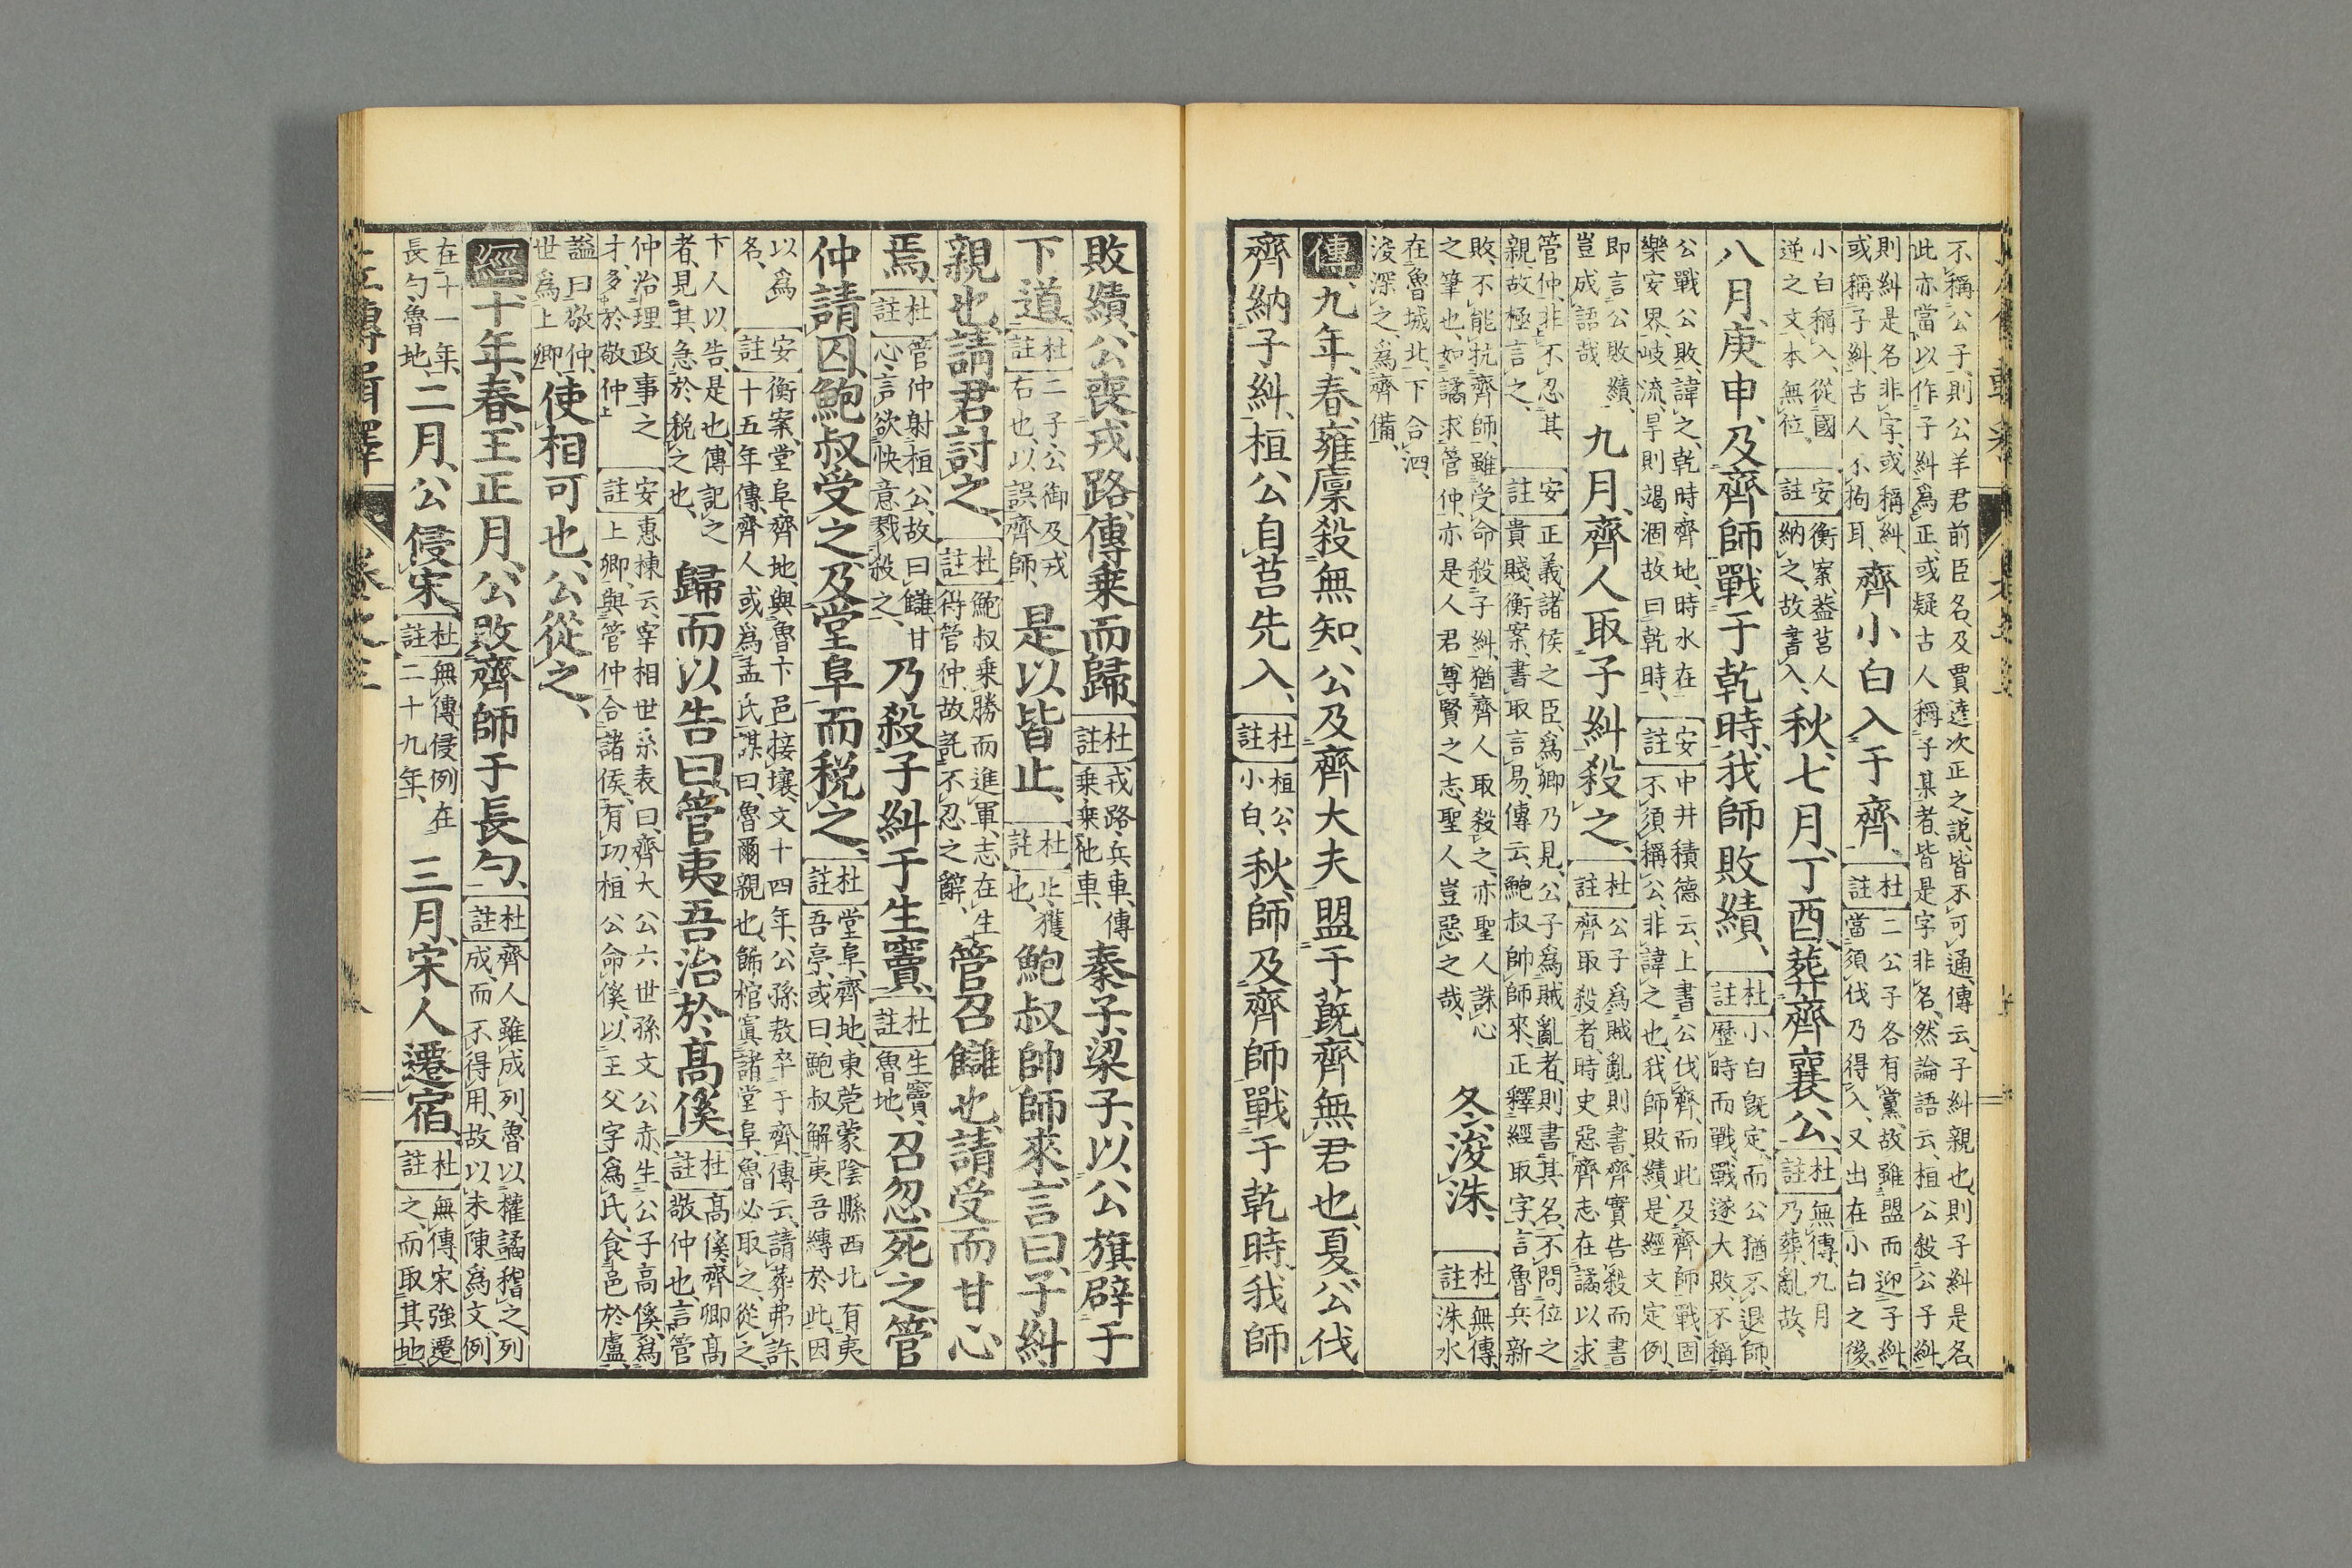 不稱公子則公羊君前臣名及賈逵次正之説皆不可通傳云子糾親也則子糾是名
此亦當以作子糾爲正或疑古人稱子某者皆是字非名然論語云桓公殺公子糾
則糾是名非字或稱糾
或稱子糾古人不拘耳
齊小白入于齊
杜註
二公子各有黨故雖盟而迎子糾
當須伐乃得入又出在小白之後
小白稱入從國
逆之文本無位
安註
衡案葢莒人
納之故書入
秋七月丁酉葬齊襄公
杜註
無傳九月
乃葬亂故
八月庚申及齊師戰于乾時我師敗績
杜註
小白既定而公猶不退師
歷時而戰戰遂大敗不稱
公戰公敗諱之乾時齊地時水在
樂安界岐流旱則竭涸故曰乾時
安註
中井積德云上書公伐齊而此及齊師戰固
不須稱公非諱之也我師敗績是經文定例
即言公敗績
豈成語哉
九月齊人取子糾殺之
杜註
公子爲賊亂則書齊實告殺而書
齊取殺者時史惡齊志在譎以求
管仲非不忍其
親故極言之
安註
正義諸侯之臣爲卿乃見公子爲賊亂者則書其名不問位之
貴賤衡案書取言易傳云鮑叔帥師來正釋經取字言魯兵新
敗不能抗齊師雖受命殺子糾猶齊人取殺之亦聖人誅心
之筆也如譎求管仲亦是人君尊賢之志聖人豈惡之哉
冬浚洙
杜註
無傳
洙水
在魯城北下合泗
浚深之爲齊備
傳九年春雍廩殺無知公及齊大夫盟于蔇齊無君也夏公伐
齊納子糾桓公自莒先入
杜註
桓公
小白
秋師及齊師戰于乾時我師
敗績公喪戎路傳乗而歸
杜註
戎路兵車傳
乗乗他車
秦子梁子以公旗辟于
下道
杜註
二子公御及戎
右也以誤齊師
是以皆止
杜註
止獲
也
鮑叔帥師來言曰子糾
親也請君討之
杜註
鮑叔乗勝而進軍志在生
得管仲故託不忍之辭
管召讎也請受而甘心
焉
杜註
管仲射桓公故曰讎甘
心言欲快意戮殺之
乃殺子糾于生竇
杜註
生竇
魯地
召忽死之管
仲請囚鮑叔受之及堂阜而税之
杜註
堂阜齊地東莞蒙陰縣西北有夷
吾亭或曰鮑叔解夷吾縛於此因
以爲
名
安註
衡案堂阜齊地與魯卞邑接壤文十四年公孫敖卒于齊傳云請葬弗許
十五年傳齊人或爲孟氏謀曰魯爾親也飾棺寘諸堂阜魯必取之從之
卞人以告是也傳記之
者見其急於税之也
歸而以告曰管夷吾治於高傒
杜註
高傒齊卿高
敬仲也言管
仲治理政事之
才多於敬仲
安註
惠棟云宰相世系表曰齊大公六世孫文公赤生公子高傒爲
上卿與管仲合諸侯有功桓公命傒以王父字爲氏食邑於盧
謚曰敬仲
世爲上卿
使相可也公從之
經十年春王正月公敗齊師于長勺
杜註
齊人雖成列魯以權譎稽之列
成而不得用故以未陳爲文例
在十一年
長勺魯地
二月公侵宋
杜註
無傳侵例在
二十九年
三月宋人遷宿
杜註
無傳宋強遷
之而取其地